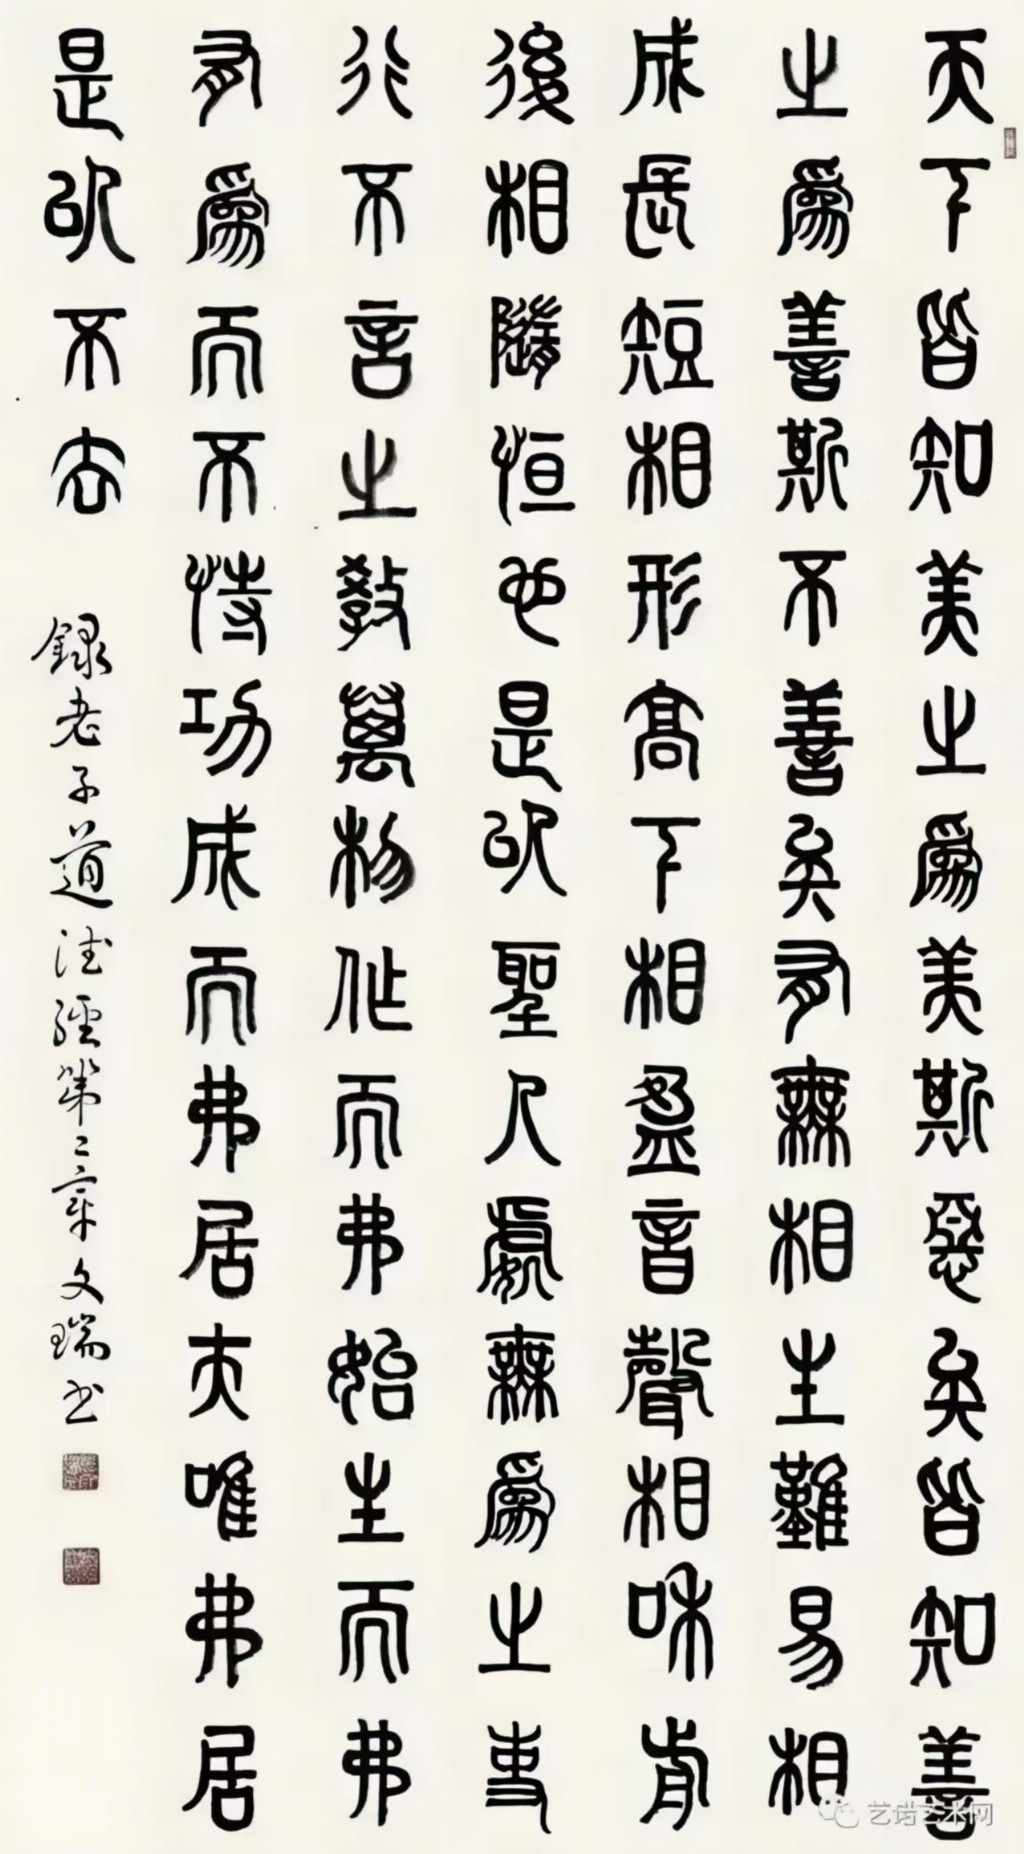 天下皆知美之爲美斯惡矣皆知善
之爲善斯不善矣有無相生難易相
成長短相形高下相盈音聲相和前
後相隨恒也是以聖人處無爲之事
行不言之教萬物作而弗始生而弗
有爲而不恃功成而弗居夫唯弗居
是以不去
録老子道德經第二章文瑞书
艺诺艺术网